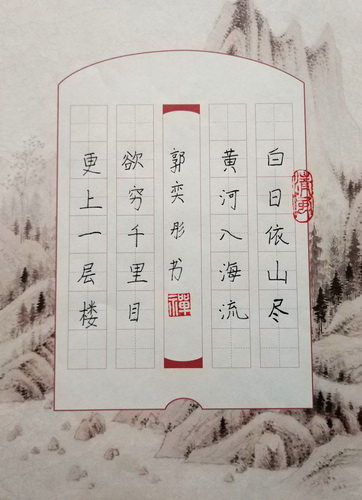 白日依山尽
黄河入海流
郭奕彤书
禅
欲穷千里目
更上一层楼